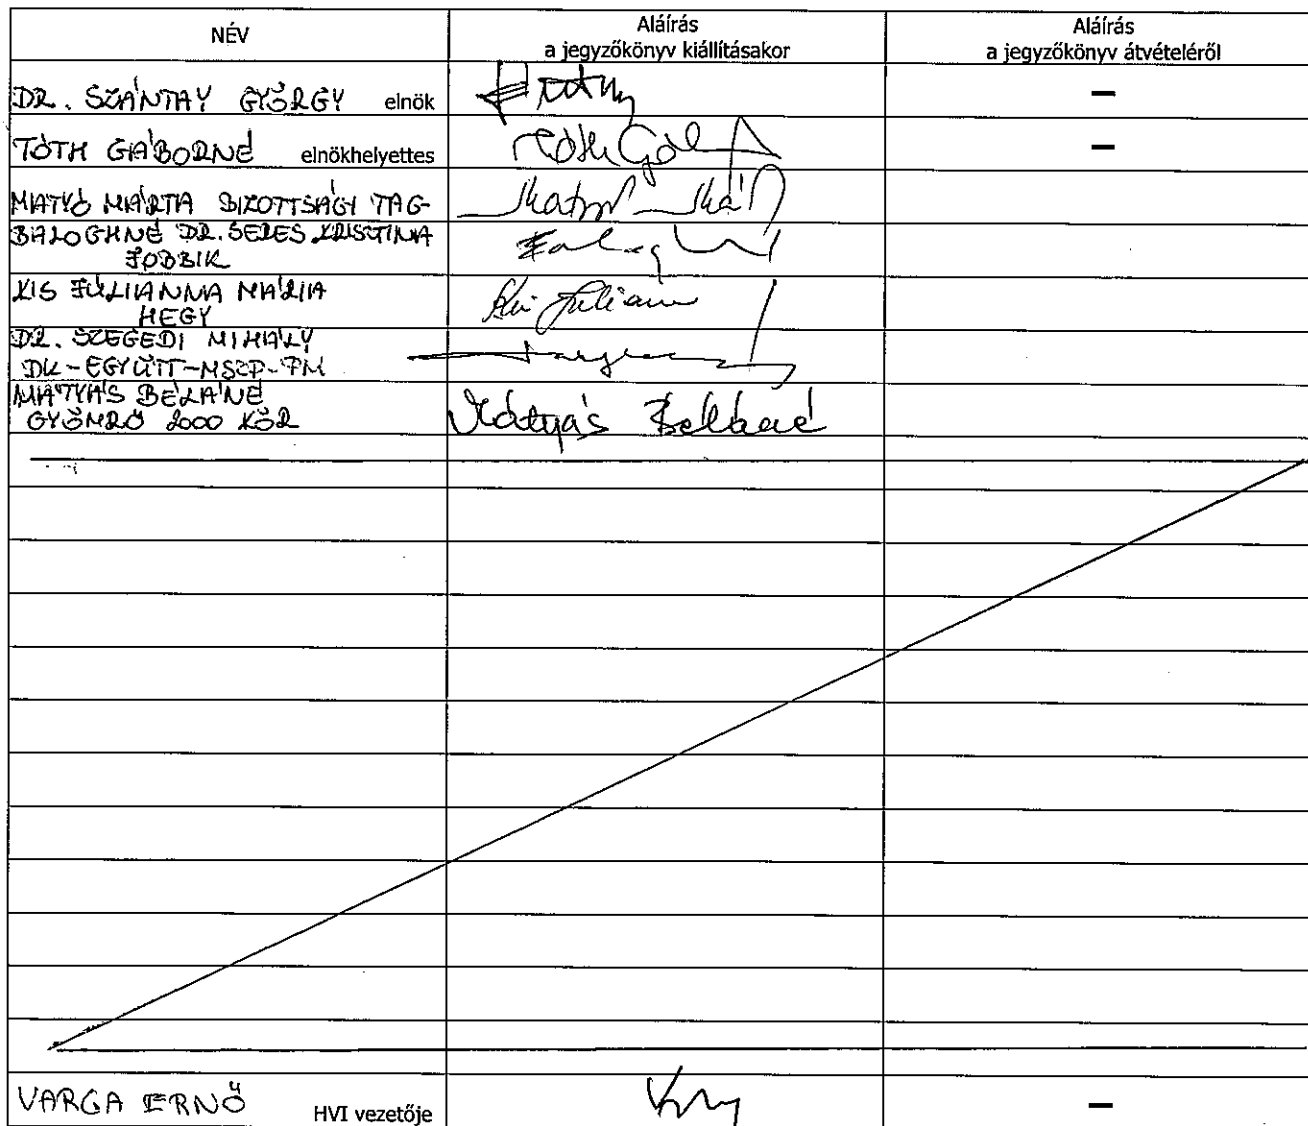 NÉV
Aláírás
a jegyzőkönyv kiállításakor
Aláírás
a jegyzőkönyv átvételéről
DR. SZÁNTAY GYÖRGY elnök
–
TÓTH GÁBORNÉ elnökhelyettes
Tóth Gáb
–
MATYÓ MÁRTA BIZOTTSÁGI TAG
BALOGHNÉ DR. SERES KRISZTINA
JOBBIK
KIS JÚLIANNA MÁRIA
HEGY
Kis Juliann
DR. SZEGEDI MIHÁLY
DK-EGYÜTT-MSZP-PM
MÁTYÁS BÉLÁNÉ
GYÖMRŐ 2000 KÖR
Mátyás Béláné
VARGA ERNŐ HVI vezetője
–